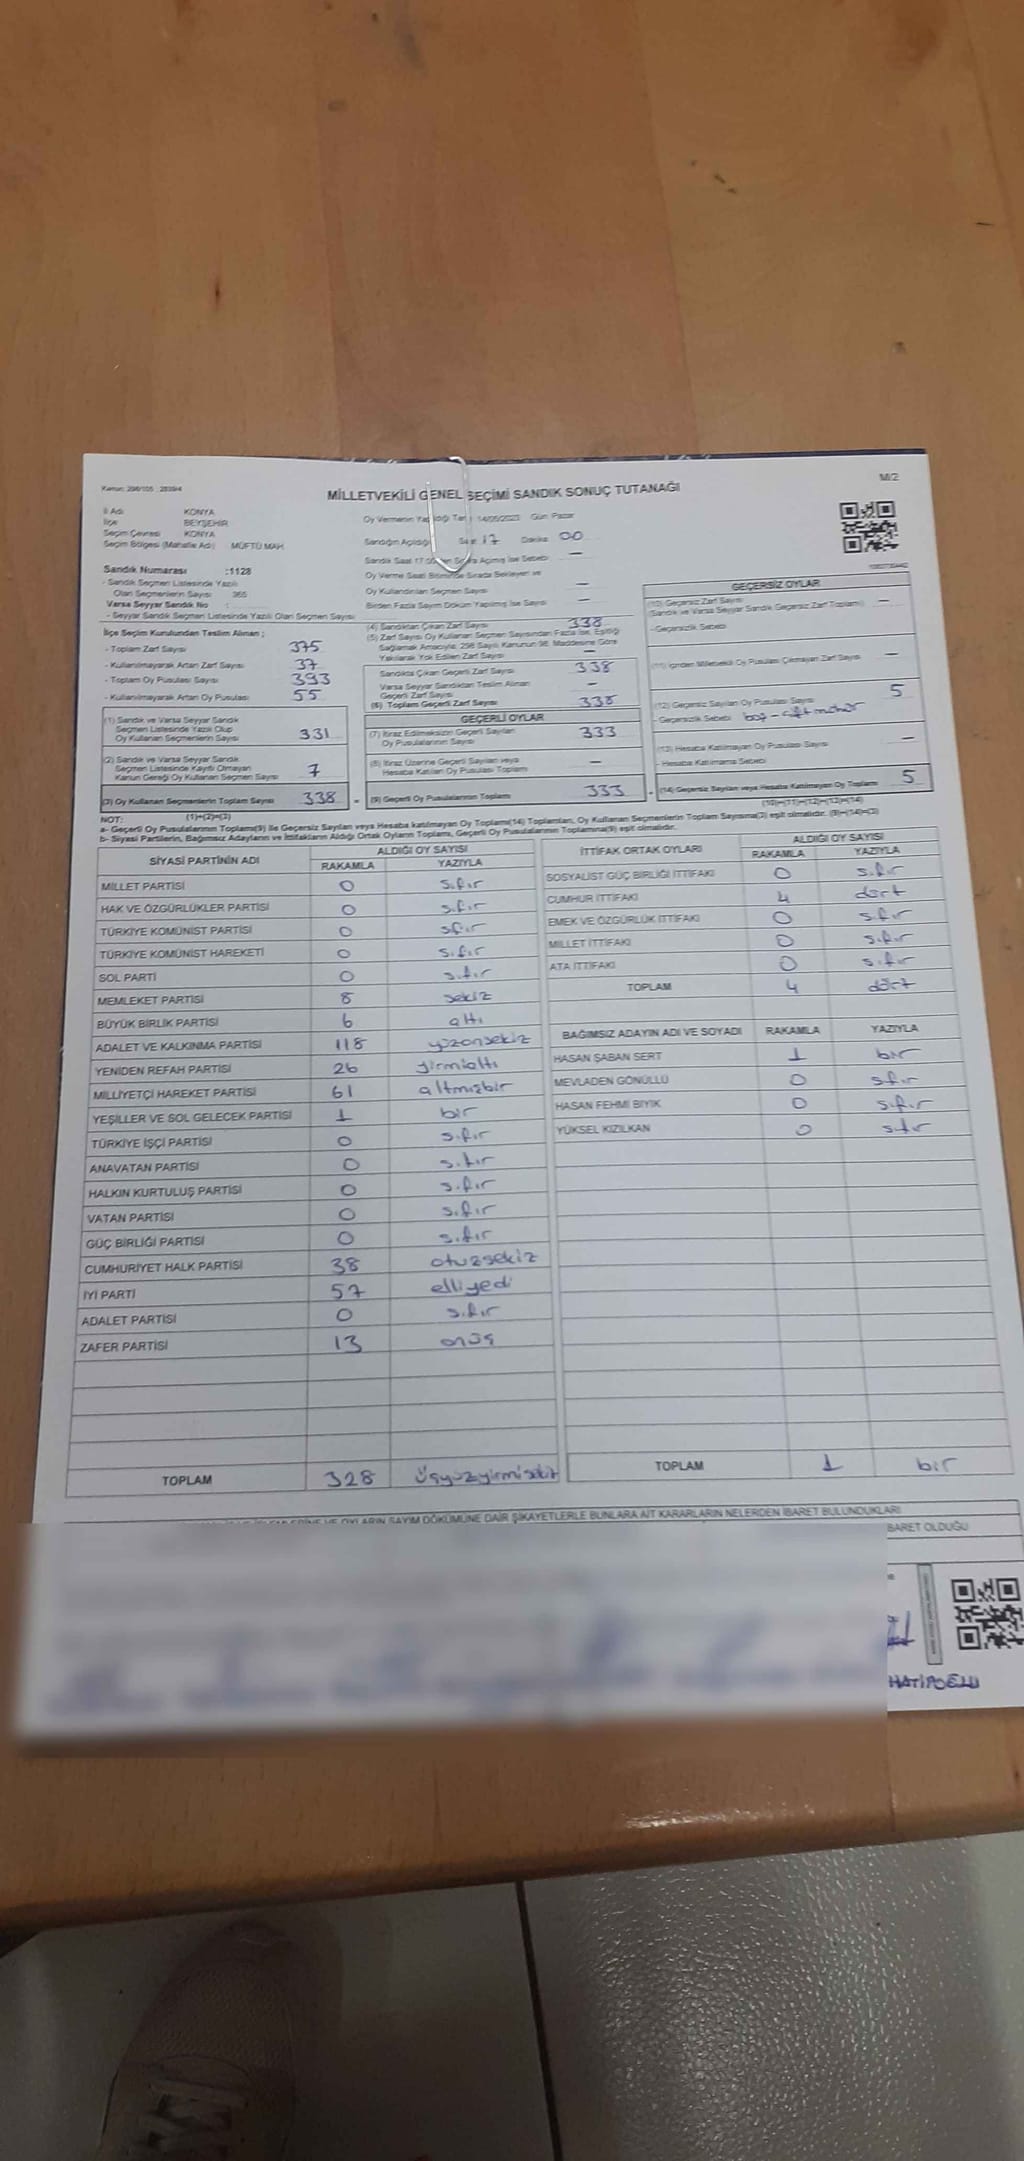 Kanun: 298/105 ; 2839/4
M/2
MİLLETVEKİLİ GENEL SEÇİMİ SANDIK SONUÇ TUTANAĞI
İl Adı KONYA
İlçe BEYŞEHİR
Seçim Çevresi KONYA
Seçim Bölgesi (Mahalle Adı) MÜFTÜ MAH
Oy Vermenin Yapıldığı Tarih 14/05/2023 Gün: Pazar
Sandığın Açıldığı Saat 17 Dakika 00
Sandık Saat 17:00'den Sonra Açılmış İse Sebebi —
Oy Verme Saati Bitiminde Sırada Bekleyen ve
Oy Kullandırılan Seçmen Sayısı —
Birden Fazla Sayım Döküm Yapılmış İse Sayısı —
Sandık Numarası :1128
- Sandık Seçmen Listesinde Yazılı
Olan Seçmenlerin Sayısı 365
Varsa Seyyar Sandık No :
- Seyyar Sandık Seçmen Listesinde Yazılı Olan Seçmen Sayısı
İlçe Seçim Kurulundan Teslim Alınan ;
- Toplam Zarf Sayısı 375
- Kullanılmayarak Artan Zarf Sayısı 37
- Toplam Oy Pusulası Sayısı 393
- Kullanılmayarak Artan Oy Pusulası 55
(1) Sandık ve Varsa Seyyar Sandık
Seçmen Listesinde Yazılı Olup
Oy Kullanan Seçmenlerin Sayısı 331
(2) Sandık ve Varsa Seyyar Sandık
Seçmen Listesinde Kayıtlı Olmayan
Kanun Gereği Oy Kullanan Seçmen Sayısı 7
(3) Oy Kullanan Seçmenlerin Toplam Sayısı 338
(1)+(2)=(3)
(4) Sandıktan Çıkan Zarf Sayısı 338
(5) Zarf Sayısı Oy Kullanan Seçmen Sayısından Fazla İse, Eşitliği
Sağlamak Amacıyla; 298 Sayılı Kanunun 98. Maddesine Göre
Yakılarak Yok Edilen Zarf Sayısı —
Sandıkta Çıkan Geçerli Zarf Sayısı 338
Varsa Seyyar Sandıktan Teslim Alınan
Geçerli Zarf Sayısı —
(6) Toplam Geçerli Zarf Sayısı 338
GEÇERLİ OYLAR
(7) İtiraz Edilmeksizin Geçerli Sayılan
Oy Pusulalarının Sayısı 333
(8) İtiraz Üzerine Geçerli Sayılan veya
Hesaba Katılan Oy Pusulası Toplamı —
(9) Geçerli Oy Pusulalarının Toplamı 333
GEÇERSİZ OYLAR
(10) Geçersiz Zarf Sayısı
(Sandık ve Varsa Seyyar Sandık Geçersiz Zarf Toplamı) —
- Geçersizlik Sebebi
(11) İçinden Milletvekili Oy Pusulası Çıkmayan Zarf Sayısı —
(12) Geçersiz Sayılan Oy Pusulası Sayısı 5
- Geçersizlik Sebebi boş - çift mühür
(13) Hesaba Katılmayan Oy Pusulası Sayısı —
- Hesaba Katılmama Sebebi
(14) Geçersiz Sayılan veya Hesaba Katılmayan Oy Toplamı 5
(10)+(11)+(12)+(13)=(14)
NOT:
a- Geçerli Oy Pusulalarının Toplamı(9) ile Geçersiz Sayılan veya Hesaba katılmayan Oy Toplamı(14) Toplamları, Oy Kullanan Seçmenlerin Toplam Sayısına(3) eşit olmalıdır. (9)+(14)=(3)
b- Siyasi Partilerin, Bağımsız Adayların ve İttifakların Aldığı Ortak Oyların Toplamı, Geçerli Oy Pusulalarının Toplamına(9) eşit olmalıdır.
SİYASİ PARTİNİN ADI ALDIĞI OY SAYISI
RAKAMLA YAZIYLA
MİLLET PARTİSİ 0 sıfır
HAK VE ÖZGÜRLÜKLER PARTİSİ 0 sıfır
TÜRKİYE KOMÜNİST PARTİSİ 0 sıfır
TÜRKİYE KOMÜNİST HAREKETİ 0 sıfır
SOL PARTİ 0 sıfır
MEMLEKET PARTİSİ 8 sekiz
BÜYÜK BİRLİK PARTİSİ 6 altı
ADALET VE KALKINMA PARTİSİ 118 yüzonsekiz
YENİDEN REFAH PARTİSİ 26 yirmialtı
MİLLİYETÇİ HAREKET PARTİSİ 61 altmışbir
YEŞİLLER VE SOL GELECEK PARTİSİ 1 bir
TÜRKİYE İŞÇİ PARTİSİ 0 sıfır
ANAVATAN PARTİSİ 0 sıfır
HALKIN KURTULUŞ PARTİSİ 0 sıfır
VATAN PARTİSİ 0 sıfır
GÜÇ BİRLİĞİ PARTİSİ 0 sıfır
CUMHURİYET HALK PARTİSİ 38 otuzsekiz
İYİ PARTİ 57 elliyedi
ADALET PARTİSİ 0 sıfır
ZAFER PARTİSİ 13 onüç
TOPLAM 328 Üçyüzyirmisekiz
İTTİFAK ORTAK OYLARI ALDIĞI OY SAYISI
RAKAMLA YAZIYLA
SOSYALİST GÜÇ BİRLİĞİ İTTİFAKI 0 sıfır
CUMHUR İTTİFAKI 4 dört
EMEK VE ÖZGÜRLÜK İTTİFAKI 0 sıfır
MİLLET İTTİFAKI 0 sıfır
ATA İTTİFAKI 0 sıfır
TOPLAM 4 dört
BAĞIMSIZ ADAYIN ADI VE SOYADI RAKAMLA YAZIYLA
HASAN ŞABAN SERT 1 bir
MEVLADEN GÖNÜLLÜ 0 sıfır
HASAN FEHMİ BIYIK 0 sıfır
YÜKSEL KIZILKAN 0 sıfır
TOPLAM 1 bir
OYLARIN SAYIM DÖKÜMÜNE DAİR ŞİKAYETLERLE BUNLARA AİT KARARLARIN NELERDEN İBARET BULUNDUKLARI
BARET OLDUĞU
HATİPOĞLU